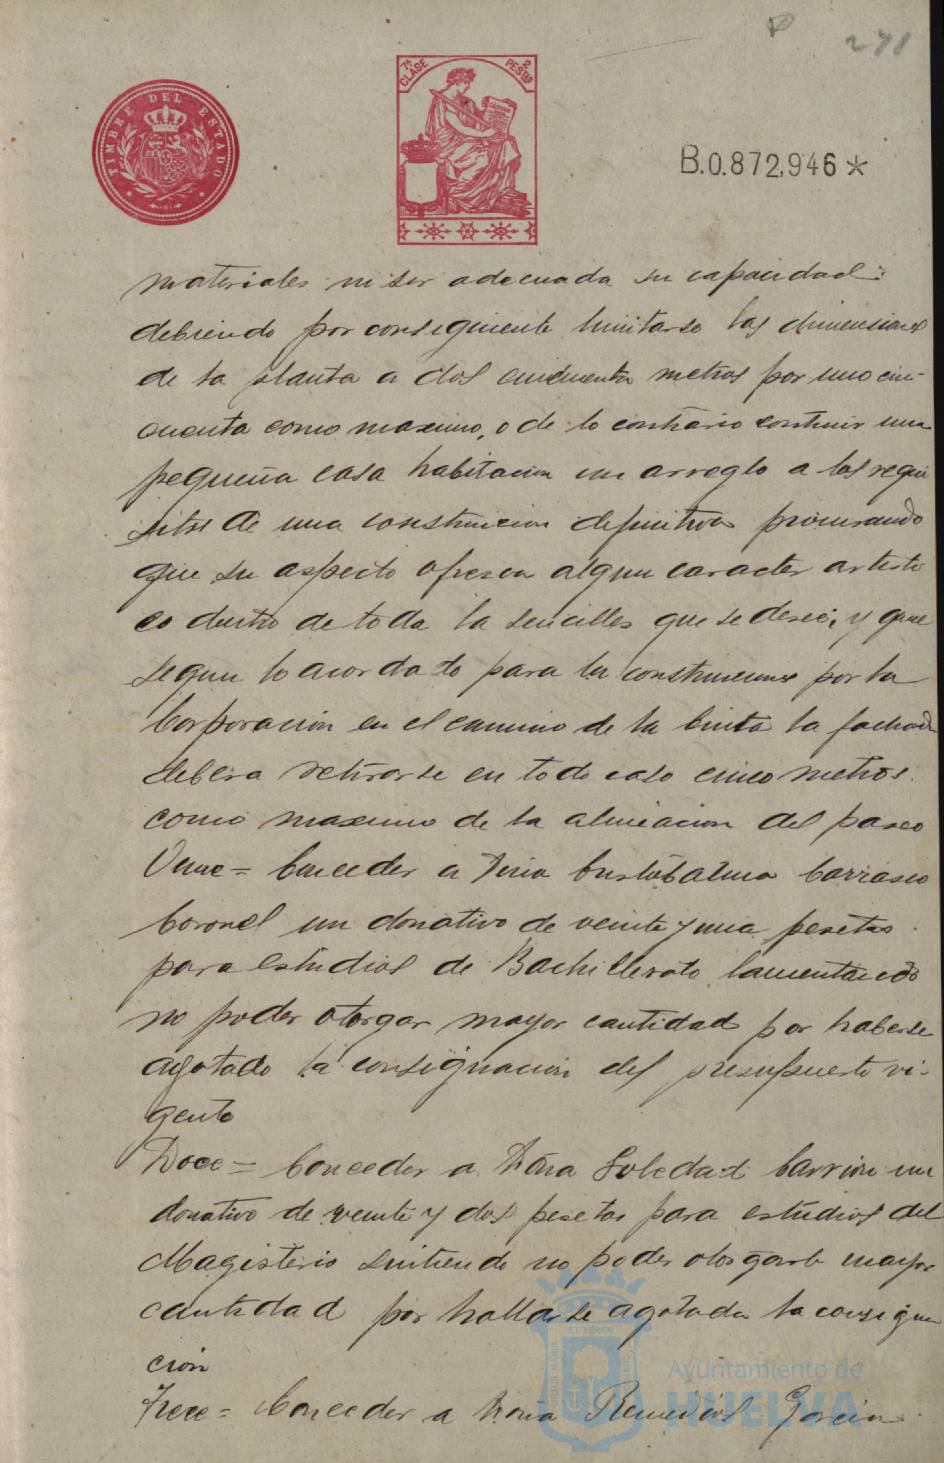 271
TIMBRE DEL ESTADO
7ª CLASE 2 PESTAS
B.0.872,946 *
materiales ni ser adecuada su capacidad:
debiendo por consiguiente limitarse las dimensiones
de la planta a dos cincuenta metros por uno cin-
cuenta como maximo, o de lo contrario construir una
pequeña casa habitacion con arreglo a los requi
sitos de una construccion definitiva procurando
que su aspecto ofrezca algun caracter artisti
co dentro de toda la sencilles que se desee, y que
segun lo acordado para las construcciones por la
Corporacion en el camino de la Cinta la fachada
debera retirarse en todo caso cinco metros
como maximo de la alineacion del paseo
Once = Conceder a Carrasco
Coronel un donativo de veinte y una pesetas
para estudios de Bachillerato lamentando
no poder otorgar mayor cantidad por haberse
agotado la consignacion del presupuesto vi-
gente
Doce = Conceder a Doña Soledad Carrion un
donativo de veinte y dos pesetas para estudios del
Magisterio sintiendo no poder otorgarle mayor
cantidad por hallarse agotada la consigna
cion
Trece = Conceder a Doña Remedios Garcia
Ayuntamiento de
HUELVA